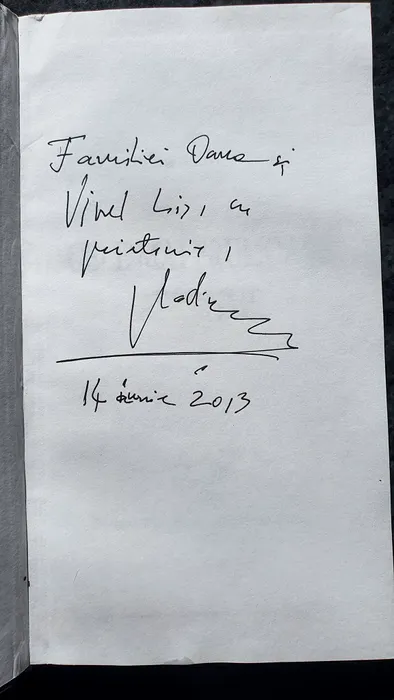 Familiei Dana și
Viorel Lis, cu
prietenie,
14 iunie 2013